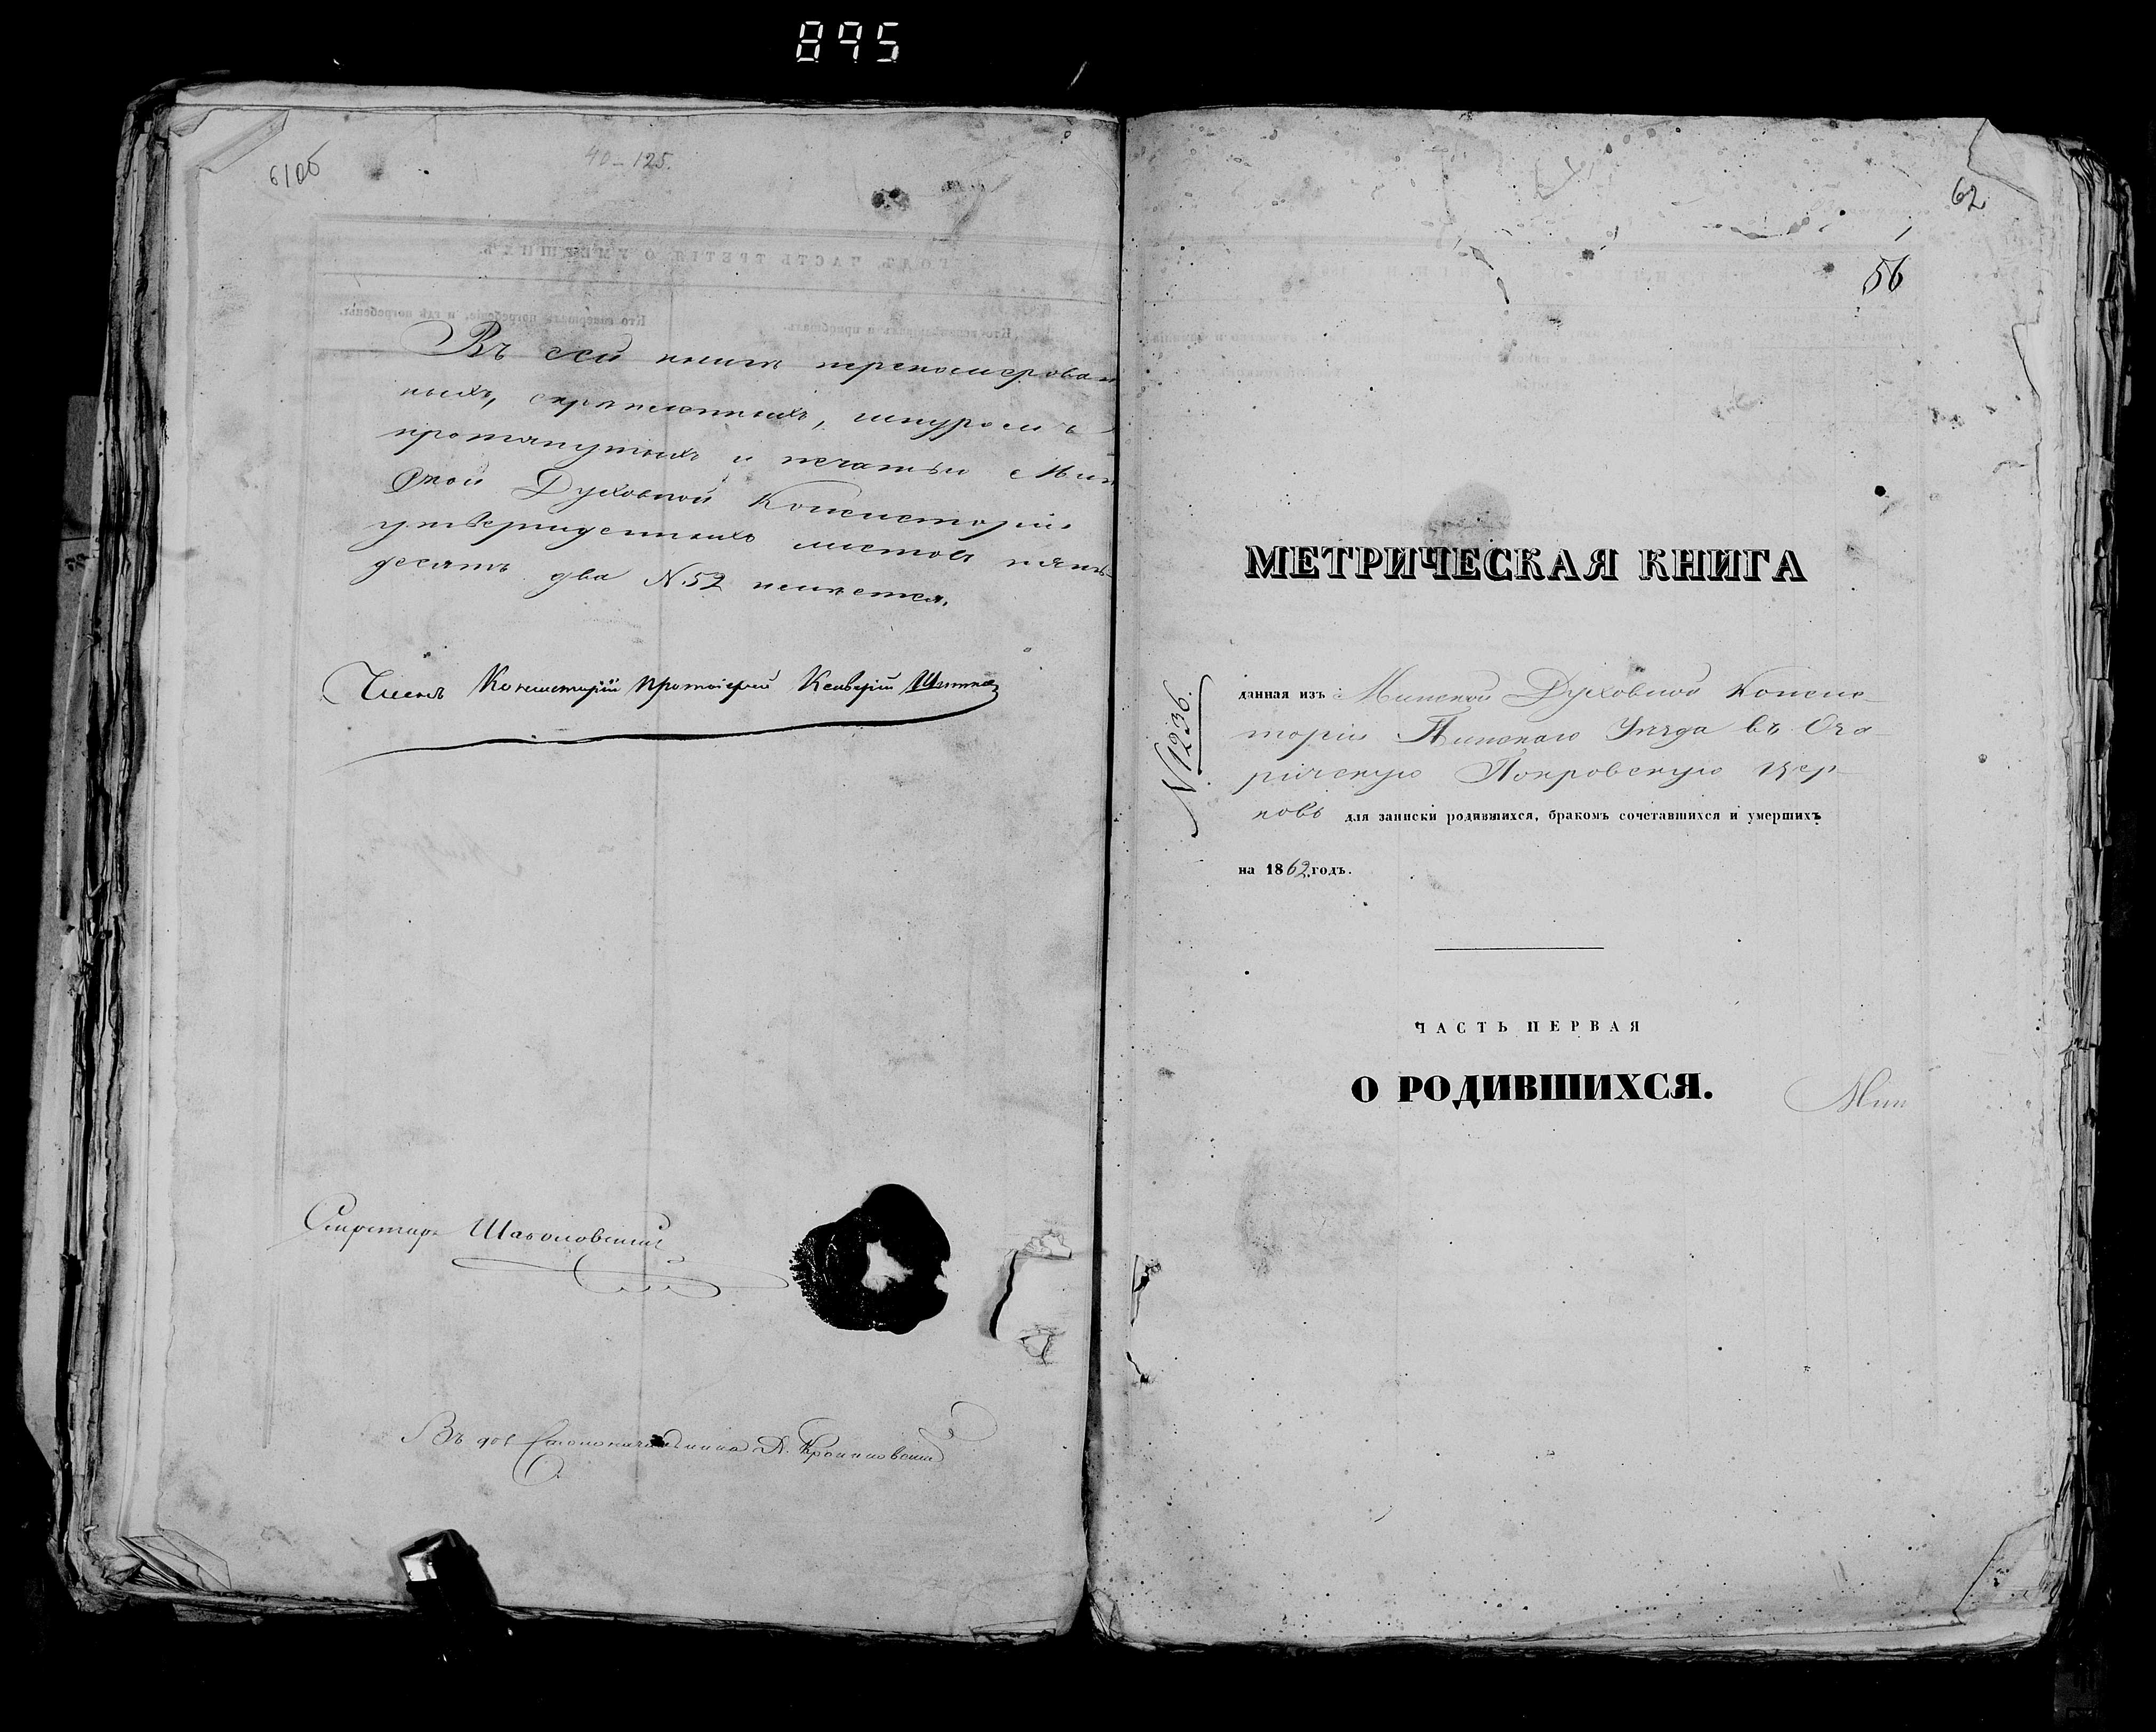 895
61об
40-125.
Въ сей книгѣ перенумерован
ныхъ, скрѣпленныхъ, шнуромъ
протянутыхъ и печатью Мин
ской Духовной Консисторіи
утвержденныхъ листовъ пять-
десятъ два №52 имѣется.
Членъ Консисторіи Протоіерей Ксаверій
Секретарь
Въ дол Столоначальника А.
62
1
56
МЕТРИЧЕСКАЯ КНИГА
N 1236.
данная изъ Минской Духовной Консис-
торіи Пинскаго Уѣзда въ Оча-
ричскую Покровскую Цер-
ковь для записки родившихся, бракомъ сочетавшихся и умершихъ
на 1862 годъ.
ЧАСТЬ ПЕРВАЯ
О РОДИВШИХСЯ.
Мин